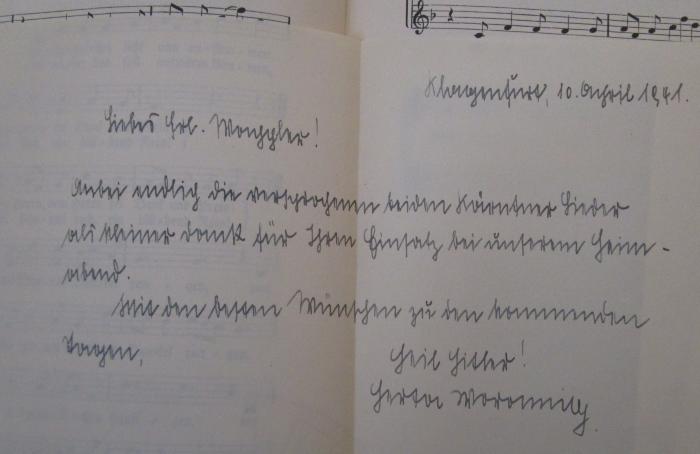 Klagenfurt, 10. April 1941.
Liebes Frl.
Anbei endlich die versprochenen beiden Kärntner Lieder
als kleiner Dank für Ihren Einsatz bei unserem Heim-
abend.
Mit den besten Wünschen zu den kommenden
Tagen,
Heil Hitler!
Herta